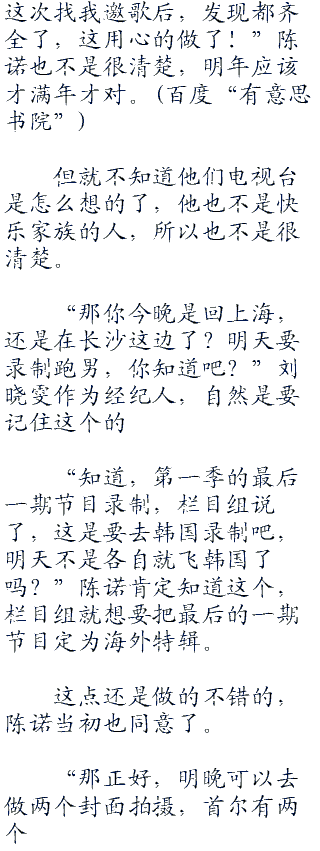 这次找我邀歌后，发现都齐
全了，这用心的做了！”陈
诺也不是很清楚，明年应该
才满年才对。(百度“有意思
书院”)
但就不知道他们电视台
是怎么想的了，他也不是快
乐家族的人，所以也不是很
清楚。
“那你今晚是回上海，
还是在长沙这边了？明天要
录制跑男，你知道吧？”刘
晓雯作为经纪人，自然是要
记住这个的
“知道，第一季的最后
一期节目录制，栏目组说
了，这是要去韩国录制吧，
明天不是各自就飞韩国了
吗？”陈诺肯定知道这个，
栏目组就想要把最后的一期
节目定为海外特辑。
这点还是做的不错的，
陈诺当初也同意了。
“那正好，明晚可以去
做两个封面拍摄，首尔有两
个